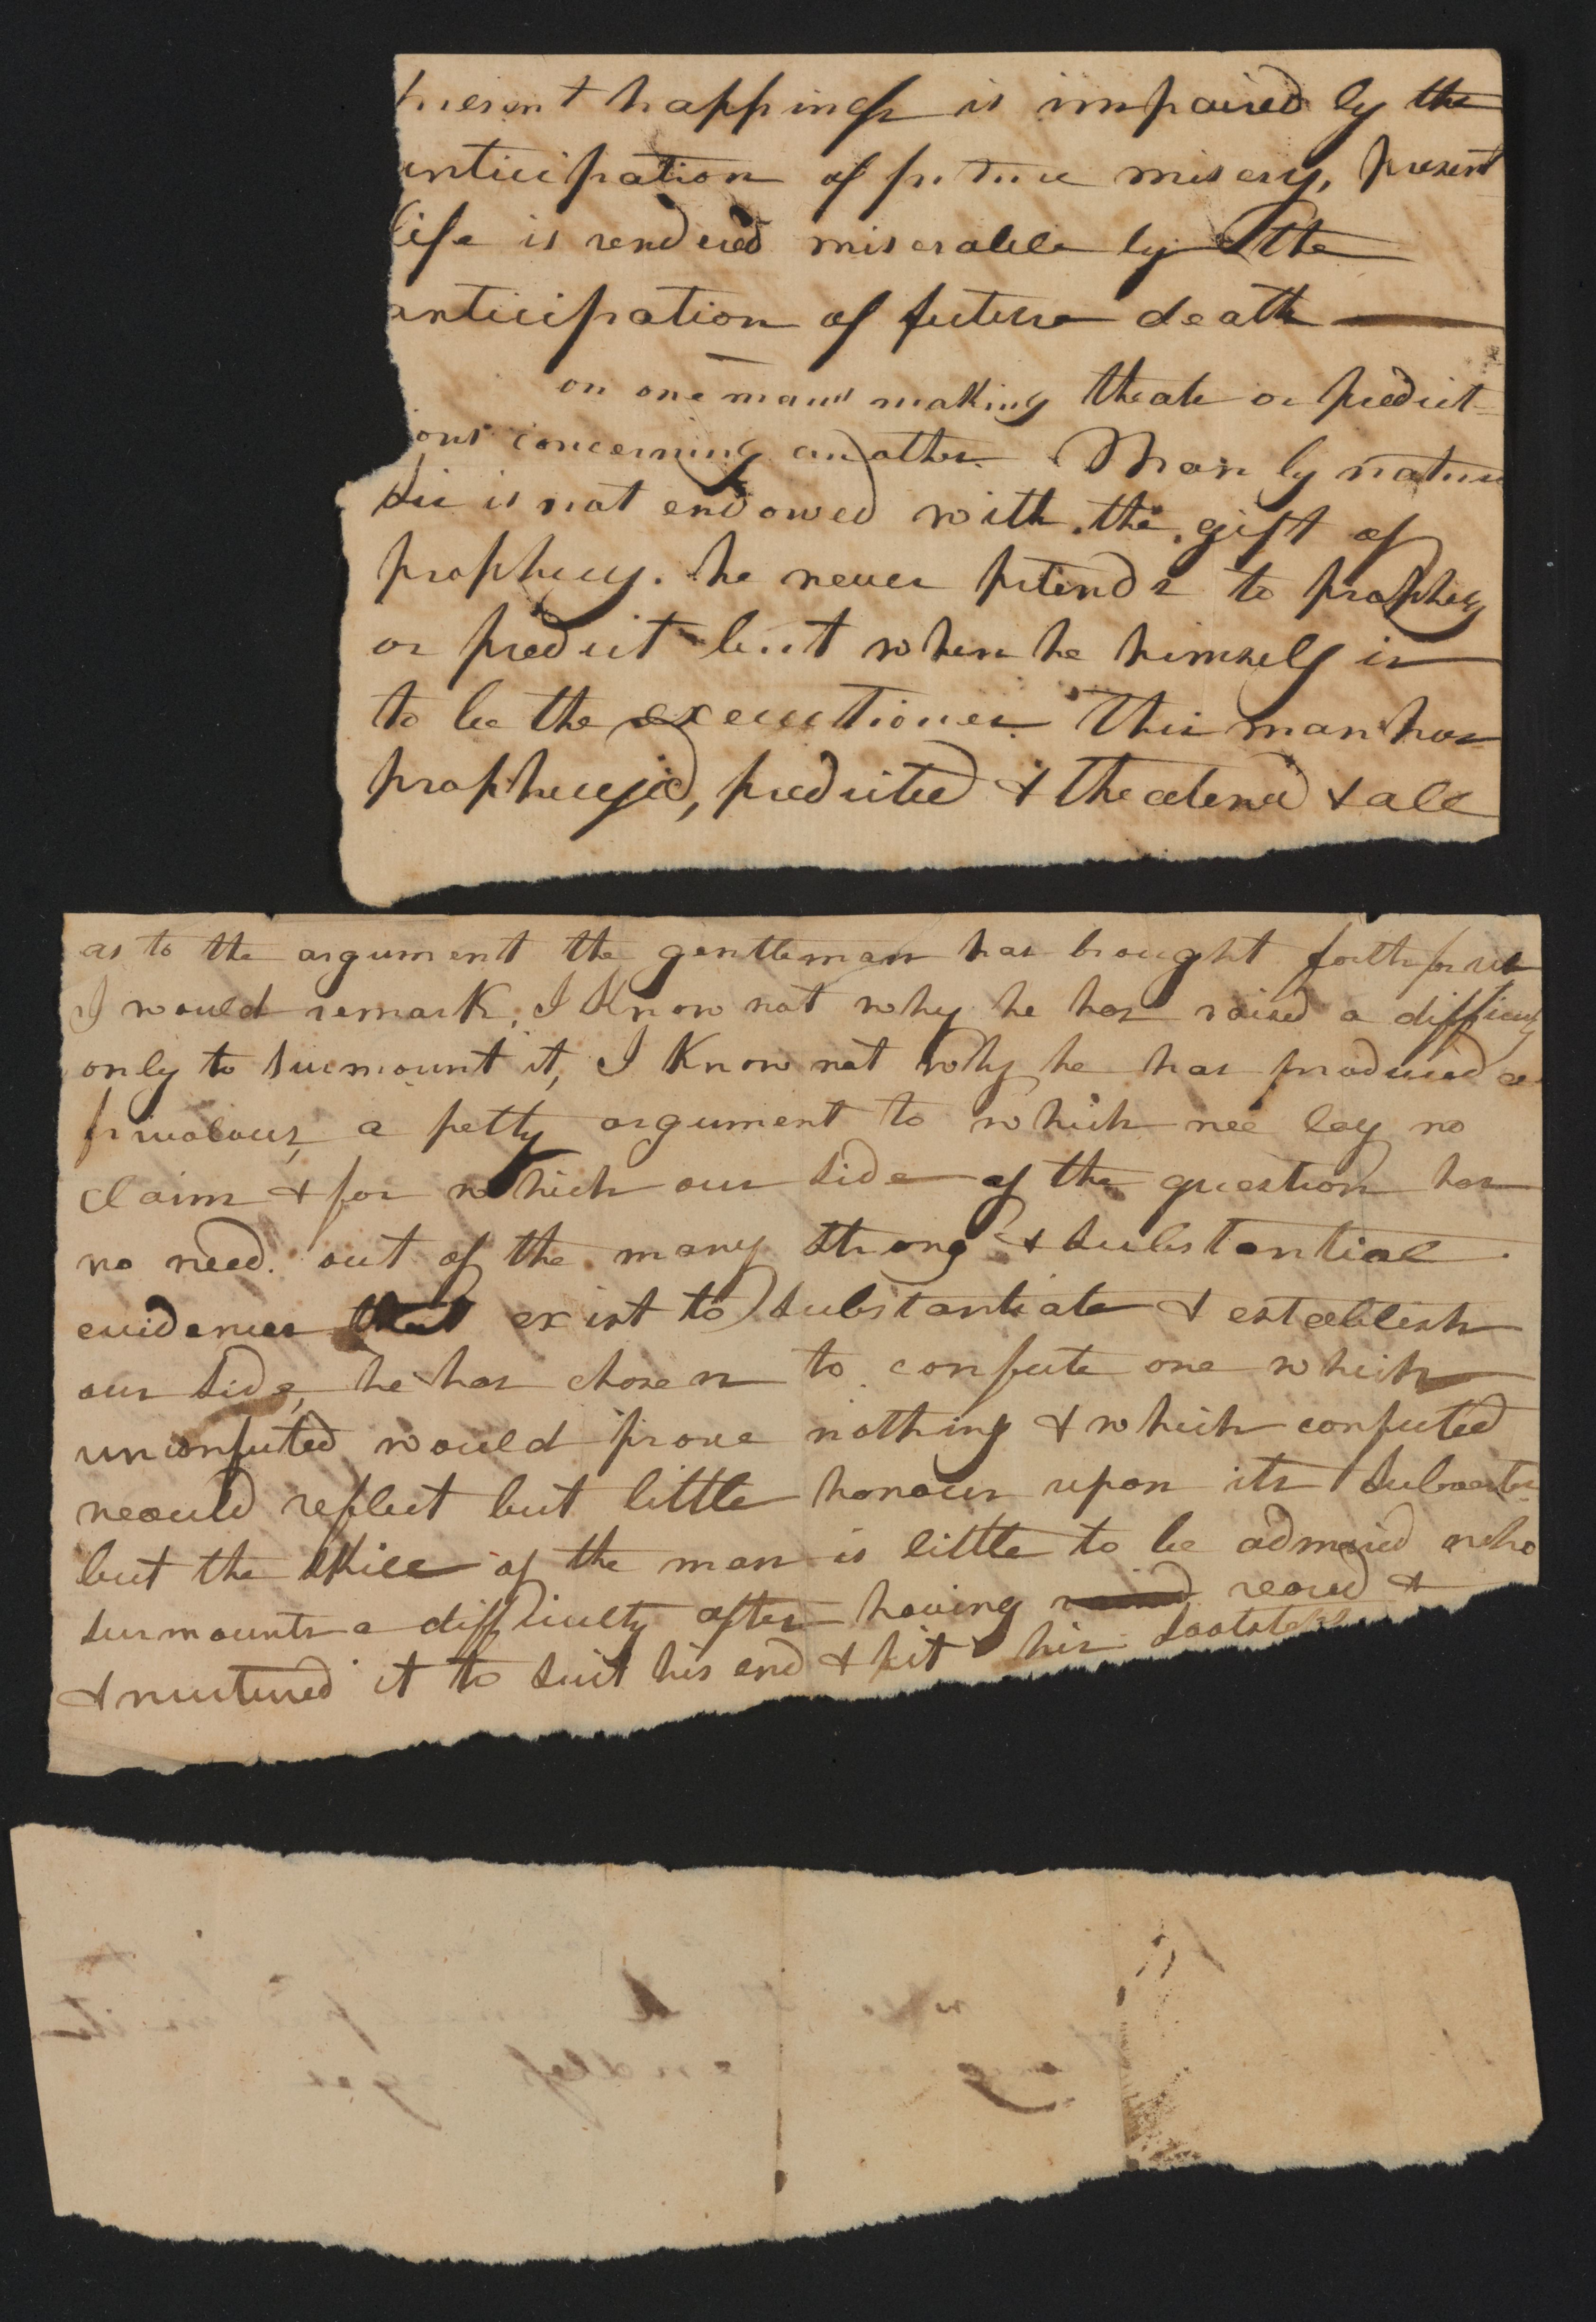 present happiness is impaired by the
anticipation of future misery, present
life is rendered miserable by the
anticipation of future death —
on one mans making threats or predict-
ions concerning another. Man by nature
Sir is not endowed with the gift of
prophecy. he never pretends to prophecy
or predict but when he himself is
to be the executioner. This man has
prophecyed, predicted & threatened & all
as to the argument the gentleman has brought forth for us
I would remark, I know not why he has raised a difficulty
only to surmount it, I know not why he has produced a
frivolous, a petty argument to which we lay no
claim & for which our side of the question has
no need. out of the many strong & substantial
evidences that exist to substantiate & establish
our side, he has chosen to confute one which
unconfuted would prove nothing & which confuted
would reflect but little honour upon its
but the skill of the man is little to be admired who
surmounts a difficulty after having raised reared &
& nurtured it to suit his end & fit his footsteps